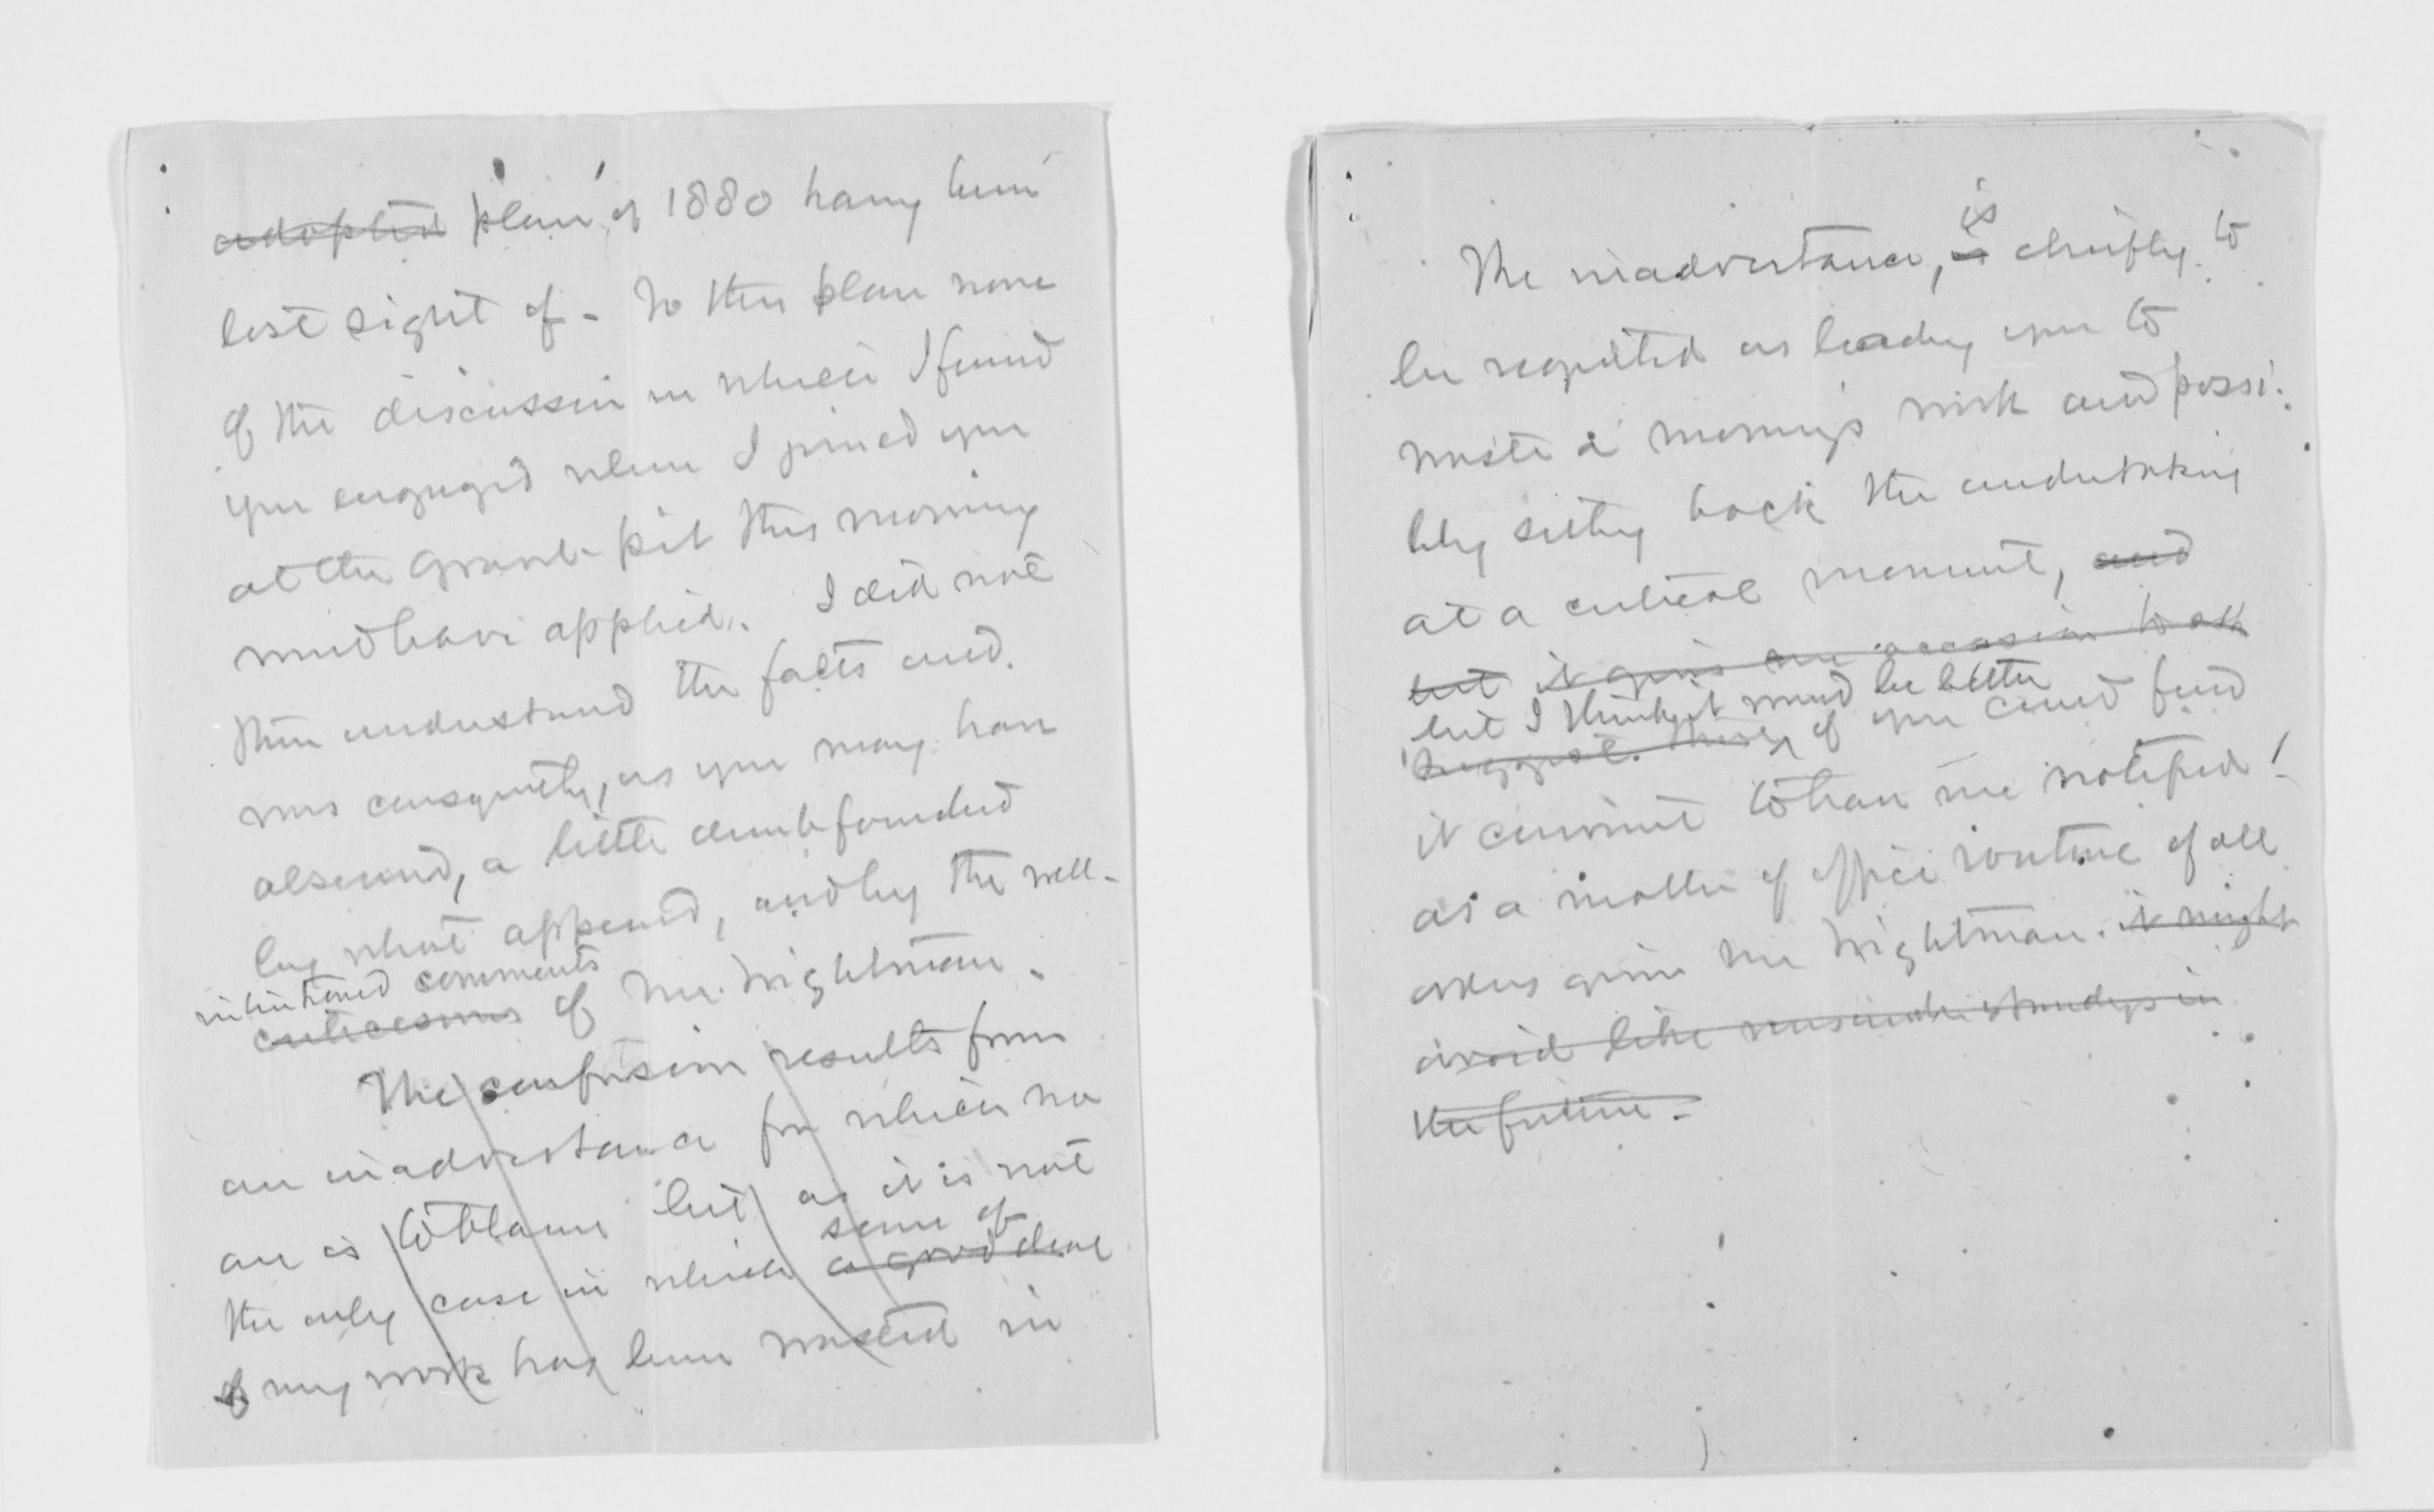 adopted plan of 1880 having been
lost sight of - To this plan none
of the discussion in which I found
you engaged when I joined you
at the gravel-pit this morning
would have applied. I did not
then understand the facts and
was consequently, as you may have
observed, a little dumbfounded
by what appeared, and by the well-
intentioned comments
criticisms of Mr. Wightman.
The confusion results from
an inadvertance for which no
one is to blame but as it is not
some of
the only case in which a good deal
of my work has been wasted in
is
The inadvertance, chiefly to
be regretted as leading you to
waste a morning's work and possi-
bly setting back the undertaking
at a critical moment, and
but it gives me occasion to ask
but I think it would be better
suggest. if you could find
it convenient to have me notified
as a matter of office routine of all
orders given Mr Wightman. it might
avoid like misunderstandings in
the future.